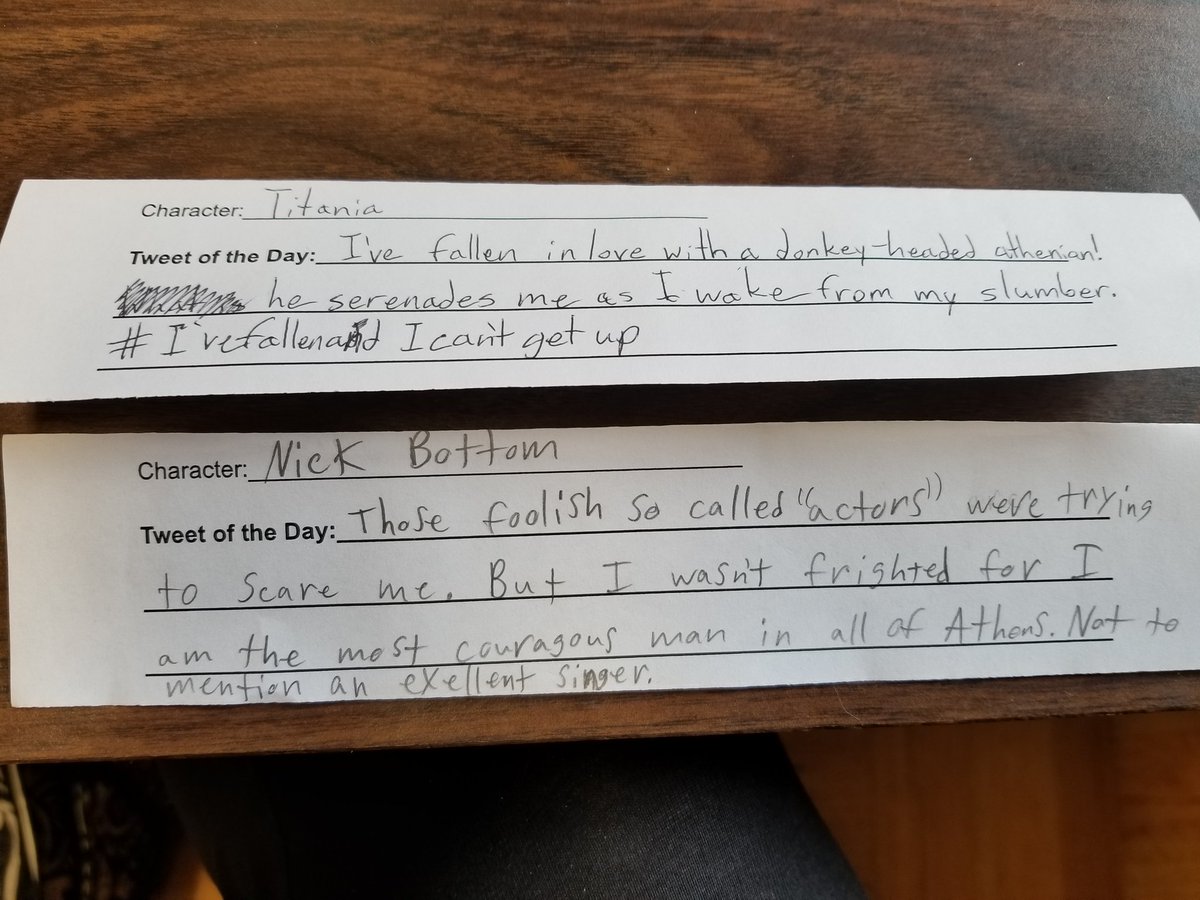 Character: Titania
Tweet of the Day: I've fallen in love with a donkey-headed athenian!
he serenades me as I wake from my slumber.
# I'vefallenand I can't get up
Character: Nick Bottom
Tweet of the Day: Those foolish so called "actors" were trying
to scare me. But I wasn't frighted for I
am the most couragous man in all of Athens. Not to
mention an exellent singer.